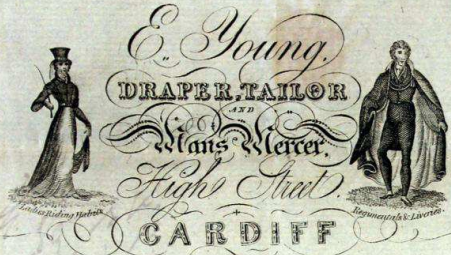 E. Young,
DRAPER, TAILOR
AND
Man's Mercer,
High Street.
CARDIFF
Ladies Riding Habits
Regimentals & Liveries.